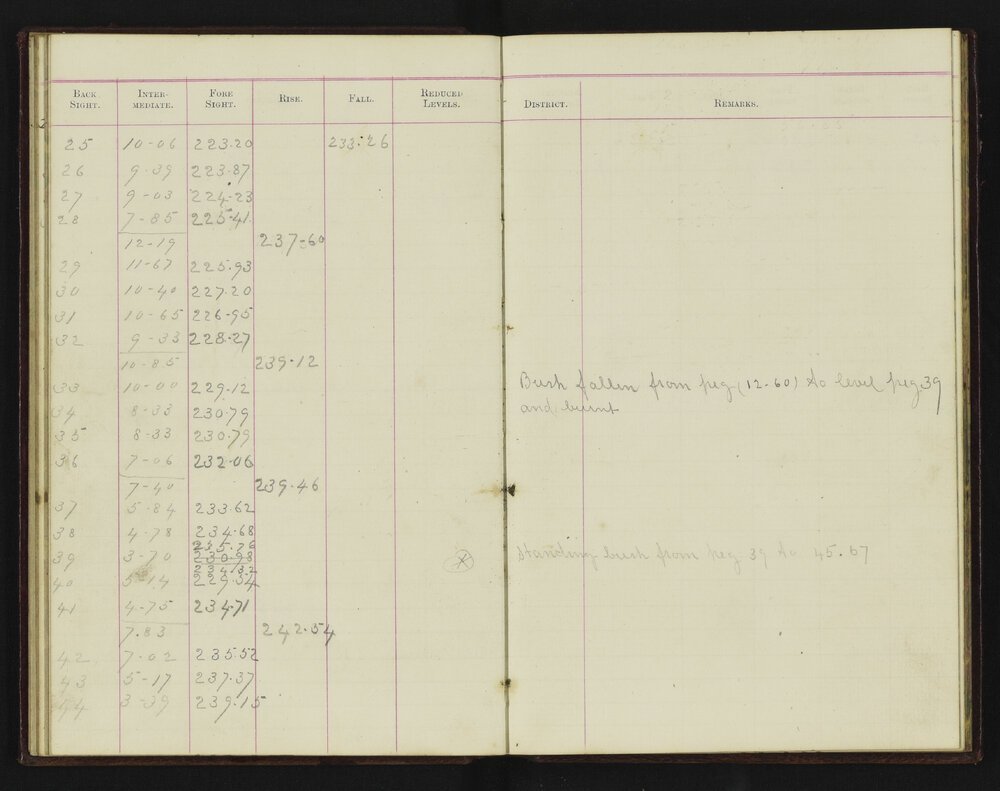 BACK SIGHT. INTER-MEDIATE. FORE SIGHT. RISE. FALL. REDUCED LEVELS. DISTRICT. REMARKS.
25 10-06 223.20 233.26
26 9.39 223.87
27 9-03 224.23
28 7-85 225.41
12-19 237-60
29 11-67 225.93
30 10-40 227.20
31 10-65 226-95
32 9-33 228.27
10-85 239.12
33 10-00 229.12
34 8-33 230.79
35 8-33 230.79
36 7-06 232.06
7-40 239.46
37 5.84 233.62
38 4.78 234.68
235.76
39 3-70 230.98
234.32
40 5-14 229.54
41 4-75 234.71
7.83 242.54
42 7.02 235.52
43 5-17 237.37
44 3-39 239.15
Bush fallen from peg (12-60) to level peg 39
and burnt
Standing bush from peg 39 to 45.67